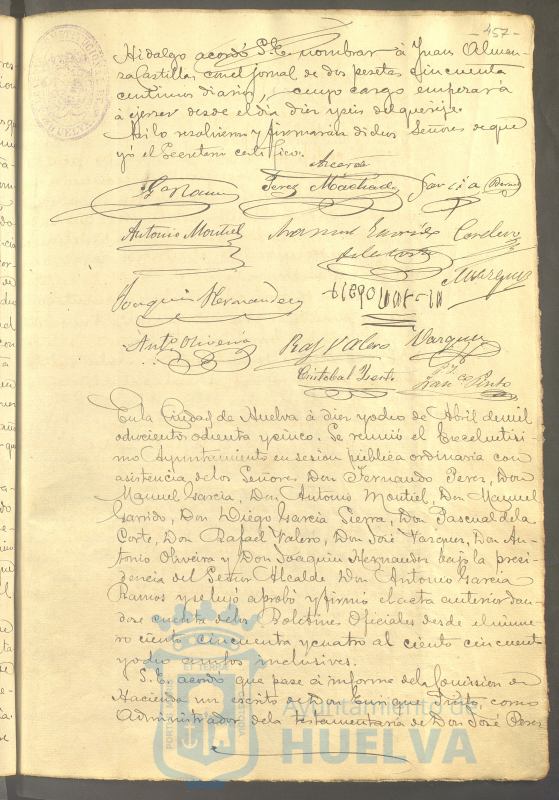 -457-
Hidalgo acordó S.E. nombrar á Juan Alman-
sa Castilla, con el jornal de dos pesetas cincuenta
centimos diarios, cuyo cargo empezará
á ejercer desde el dia diez y seis del que rije.
Asi lo resolvieron y firmarán dichos Señores de que
yó el Secretario certifico.
Perez Machado Garcia
Antonio Montiel Manuel Garrido Cordero
de la Corte Marquez
Joaquin Hernandez
Antº Oliveira Raf Valero Vazquez
Cristobal
Franco Pinto
En la Ciudad de Huelva á diez y ocho de Abril de mil
ochocientos ochenta y cinco. Se reunió el Excelentisi-
mo Ayuntamiento en sesion publica ordinaria con
asistencia de los Señores Don Fernando Perez, Don
Manuel Garcia, Don Antonio Montiel, Don Manuel
Garrido, Don Diego Garcia Sierra, Don Pascual de la
Corte, Don Rafael Valero, Don José Vazquez, Don An-
tonio Oliveira y Don Joaquin Hernandez bajo la presi-
dencia del Señor Alcalde Don Antonio Garcia
Ramos y se leyó aprobó y firmó el acta anterior dan-
dose cuenta de los Boletines Oficiales desde el nume-
ro ciento cincuenta y cuatro al ciento cincuenta
y ocho ambos inclusives.
S.E. acordó que pase á informe de la Comision de
Hacienda un escrito de Don Enrique Pinto, como
Administrador de la testamentaria de Don José Perez
Ayuntamiento de
HUELVA